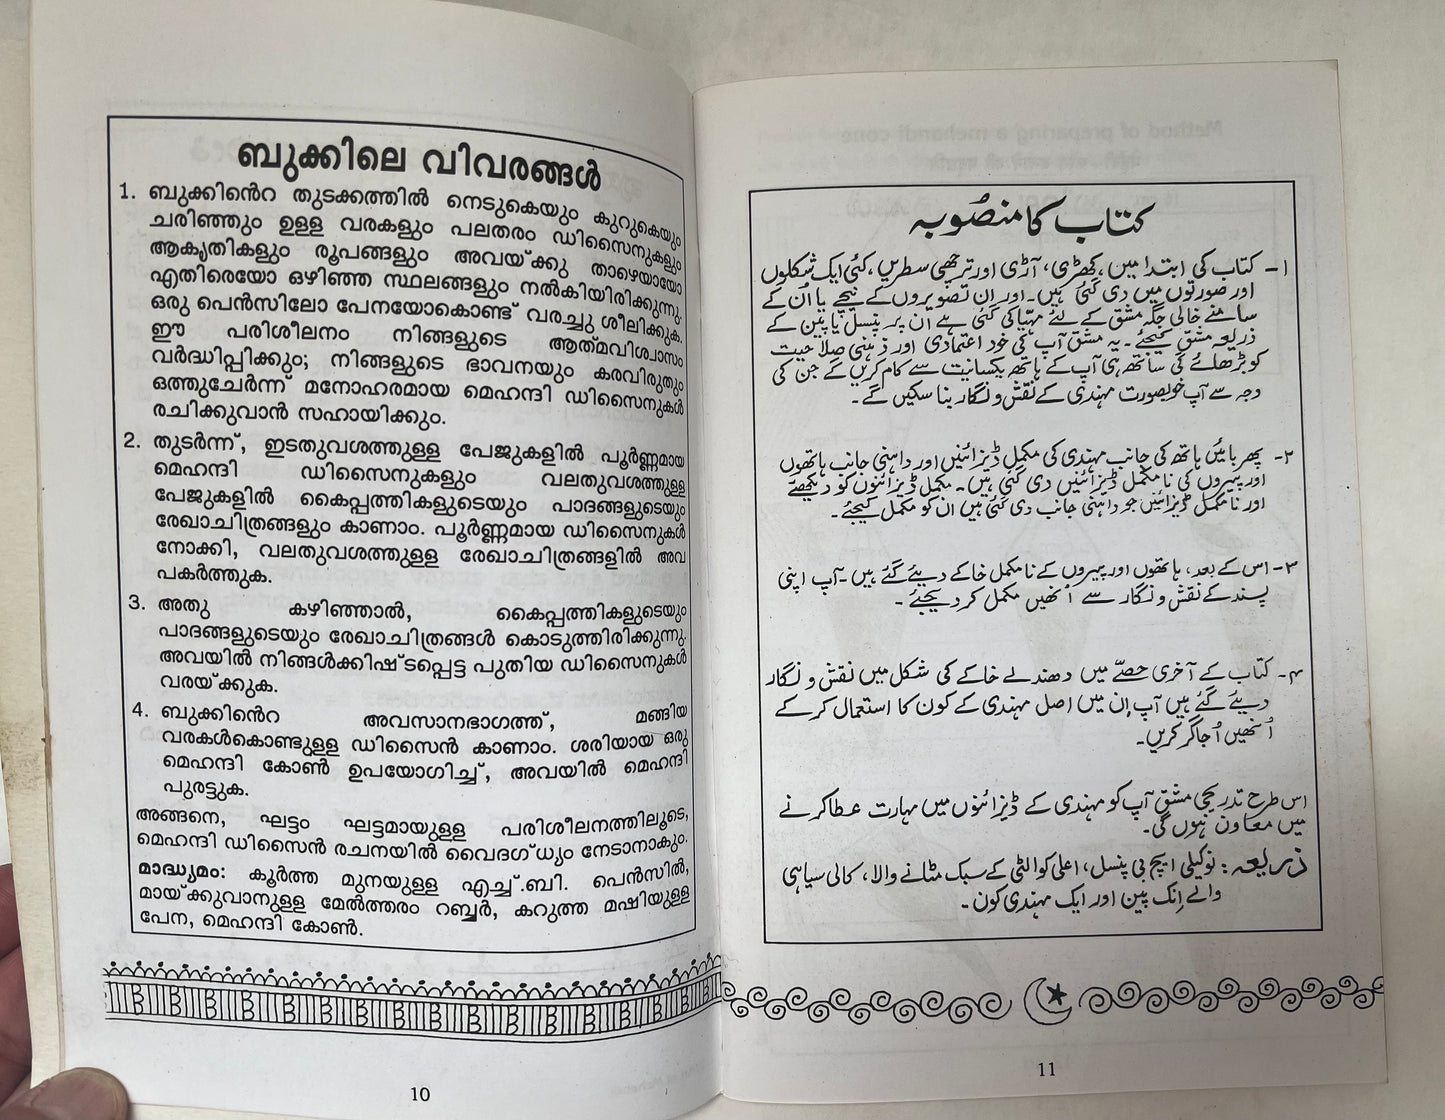 ബുക്കിലെ വിവരങ്ങൾ
1. ബുക്കിൻെറ തുടക്കത്തിൽ നെടുകെയും കുറുകെയും
ചരിഞ്ഞും ഉള്ള വരകളും പലതരം ഡിസൈനുകളും
ആകൃതികളും രൂപങ്ങളും അവയ്ക്കു താഴെയായോ
എതിരെയോ ഒഴിഞ്ഞ സ്ഥലങ്ങളും നൽകിയിരിക്കുന്നു.
ഒരു പെൻസിലോ പേനയോകൊണ്ട് വരച്ചു ശീലിക്കുക.
ഈ പരിശീലനം നിങ്ങളുടെ ആത്മവിശ്വാസം
വർദ്ധിപ്പിക്കും; നിങ്ങളുടെ ഭാവനയും കരവിരുതും
ഒത്തുചേർന്ന് മനോഹരമായ മെഹന്ദി ഡിസൈനുകൾ
രചിക്കുവാൻ സഹായിക്കും.
2. തുടർന്ന്, ഇടതുവശത്തുള്ള പേജുകളിൽ പൂർണ്ണമായ
മെഹന്ദി ഡിസൈനുകളും വലതുവശത്തുള്ള
പേജുകളിൽ കൈപ്പത്തികളുടെയും പാദങ്ങളുടെയും
രേഖാചിത്രങ്ങളും കാണാം. പൂർണ്ണമായ ഡിസൈനുകൾ
നോക്കി, വലതുവശത്തുള്ള രേഖാചിത്രങ്ങളിൽ അവ
പകർത്തുക.
3. അതു കഴിഞ്ഞാൽ, കൈപ്പത്തികളുടെയും
പാദങ്ങളുടെയും രേഖാചിത്രങ്ങൾ കൊടുത്തിരിക്കുന്നു.
അവയിൽ നിങ്ങൾക്കിഷ്ടപ്പെട്ട പുതിയ ഡിസൈനുകൾ
വരയ്ക്കുക.
4. ബുക്കിൻെറ അവസാനഭാഗത്ത്, മങ്ങിയ
വരകൾകൊണ്ടുള്ള ഡിസൈൻ കാണാം. ശരിയായ ഒരു
മെഹന്ദി കോൺ ഉപയോഗിച്ച്, അവയിൽ മെഹന്ദി
പുരട്ടുക.
അങ്ങനെ, ഘട്ടം ഘട്ടമായുള്ള പരിശീലനത്തിലൂടെ,
മെഹന്ദി ഡിസൈൻ രചനയിൽ വൈദഗ്ധ്യം നേടാനാകും.
മാദ്ധ്യമം: കൂർത്ത മുനയുള്ള എച്ച്.ബി. പെൻസിൽ,
മായ്ക്കുവാനുള്ള മേൽത്തരം റബ്ബർ, കറുത്ത മഷിയുള്ള
പേന, മെഹന്ദി കോൺ.
10
کتاب کا منصوبہ
۱۔ کتاب کی ابتدا میں، کھڑی، آڑی اور ترچھی سطریں، کئی ایک شکلوں
اور صورتوں میں دی گئی ہیں۔ اور ان تصویروں کے نیچے یا اُن کے
سامنے خالی جگہ مشق کے لئے مہیّا کی گئی ہے ان پر پنسل یا پین کے
ذریعہ مشق کیجئے۔ یہ مشق آپ کی خود اعتمادی اور ذہنی صلاحیت
کو بڑھانے کی ساتھ ہی آپ کے ہاتھ یکسانیت سے کام کریں گے جن کی
وجہ سے آپ خوبصورت مہندی کے نقش و نگار بنا سکیں گے۔
۲۔ پھر بائیں ہاتھ کی جانب مہندی کی مکمل ڈیزائنیں اور داہنی جانب ہاتھوں
اور پیروں کی نامکمل ڈیزائنیں دی گئی ہیں۔ مکمل ڈیزائنوں کو دیکھئے
اور نامکمل ڈیزائنیں جو داہنی جانب دی گئی ہیں ان کو مکمل کیجئے۔
۳۔ اس کے بعد، ہاتھوں اور پیروں کے نامکمل خاکے دیئے گئے ہیں۔ آپ اپنی
پسند کے نقش و نگار سے اُنھیں مکمل کر دیجئے۔
۴۔ کتاب کے آخری حصّے میں دھندلے خاکے کی شکل میں نقش و نگار
دیئے گئے ہیں آپ اِن میں اصل مہندی کے کون کا استعمال کر کے
اُنھیں اُجاگر کریں۔
اس طرح تدریجی مشق آپ کو مہندی کے ڈیزائنوں میں مہارت عطا کرنے
میں معاون ہوں گی۔
ذریعہ: نوکیلی ایچ بی پنسل، اعلی کوالٹی کے سبک مٹانے والا، کالی سیاہی
والے اِنک پین اور ایک مہندی کون۔
11